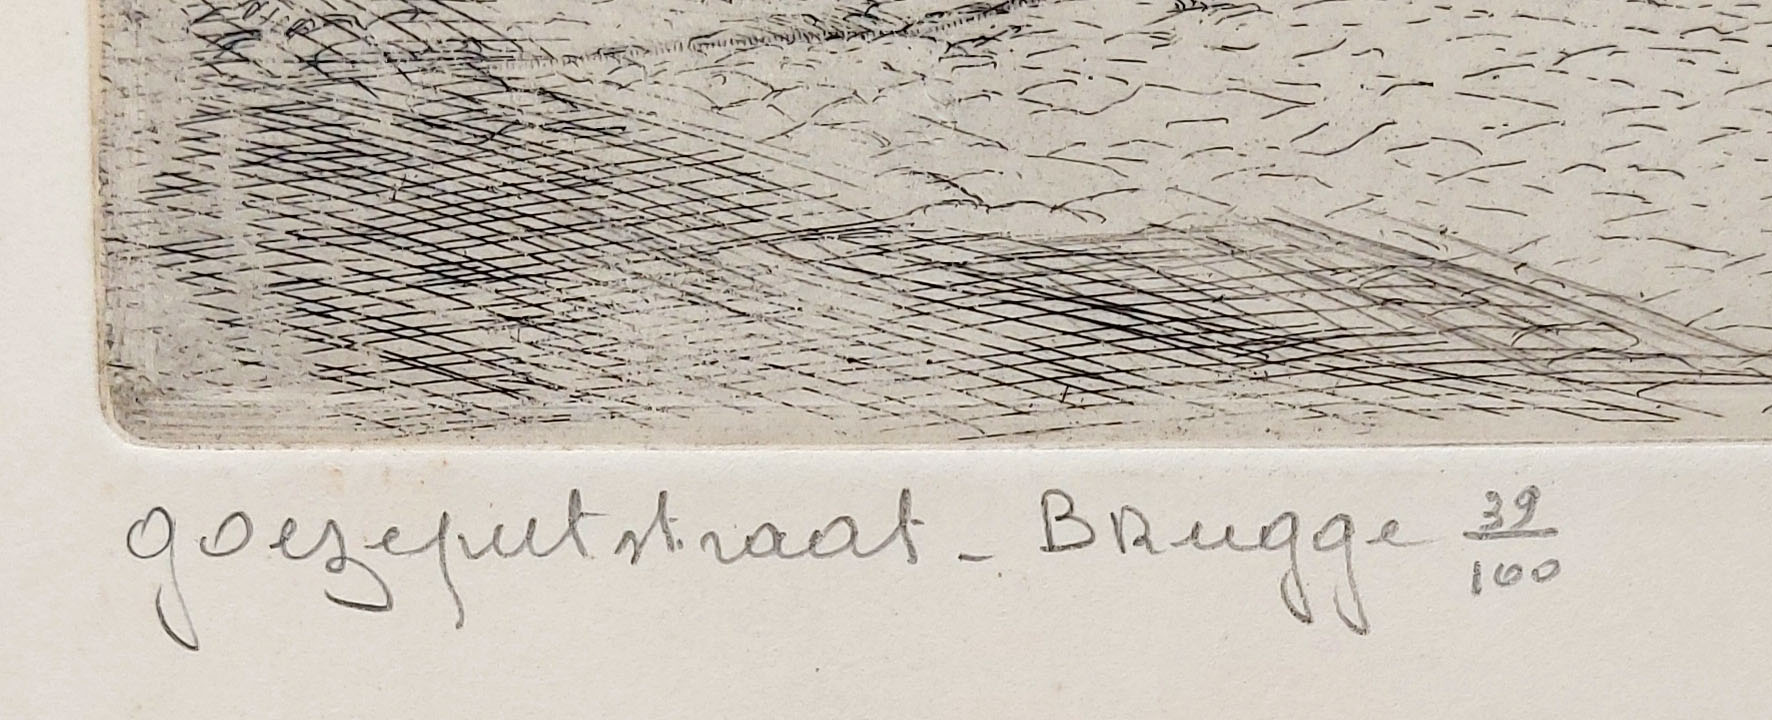 goezeputstraat - Brugge 39/100